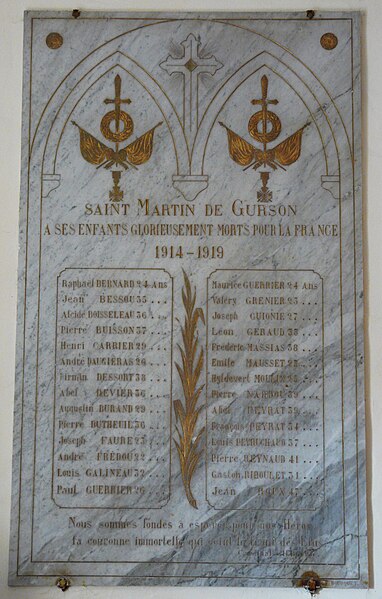 SAINT MARTIN DE GURSON
A SES ENFANTS GLORIEUSEMENT MORTS POUR LA FRANCE
1914-1919
Raphael BERNARD 24 Ans
Jean BESSOU 35 ...
Alcide BOISSELEAU 36 ...
Pierre BUISSON 37 ...
Henri CARBIER 29 ...
André DAUZIERAS 26 ...
Firmin DESSORT 38 ...
Abel DEVIER 36 ...
Augustin DURAND 29 ...
Pierre DUTHEUIL 36 ...
Joseph FAURE 23 ...
André FREDOU 22 ...
Louis GALINEAU 32 ...
Paul GUERRIER 26 ...
Maurice GUERRIER 24 Ans
Valéry GRENIER 23 ...
Joseph GUIONIE 27 ...
Léon GERAUD 33 ...
Frédéric MASSIAS 38 ...
Emile MAUSSET 23 ...
Hyldevert MOULIN 25 ...
Pierre 39 ...
Abel PEYRAT 39 ...
François PEYRAT 34 ...
Louis PEYRUCHAUD 37 ...
Pierre REYNAUD 41 ...
Gaston RIBOULET 31 ...
Jean ROUX 47 ...
Nous sommes fondés à espérer pour nos Héros
la couronne immortelle qui ceint le front des Elus